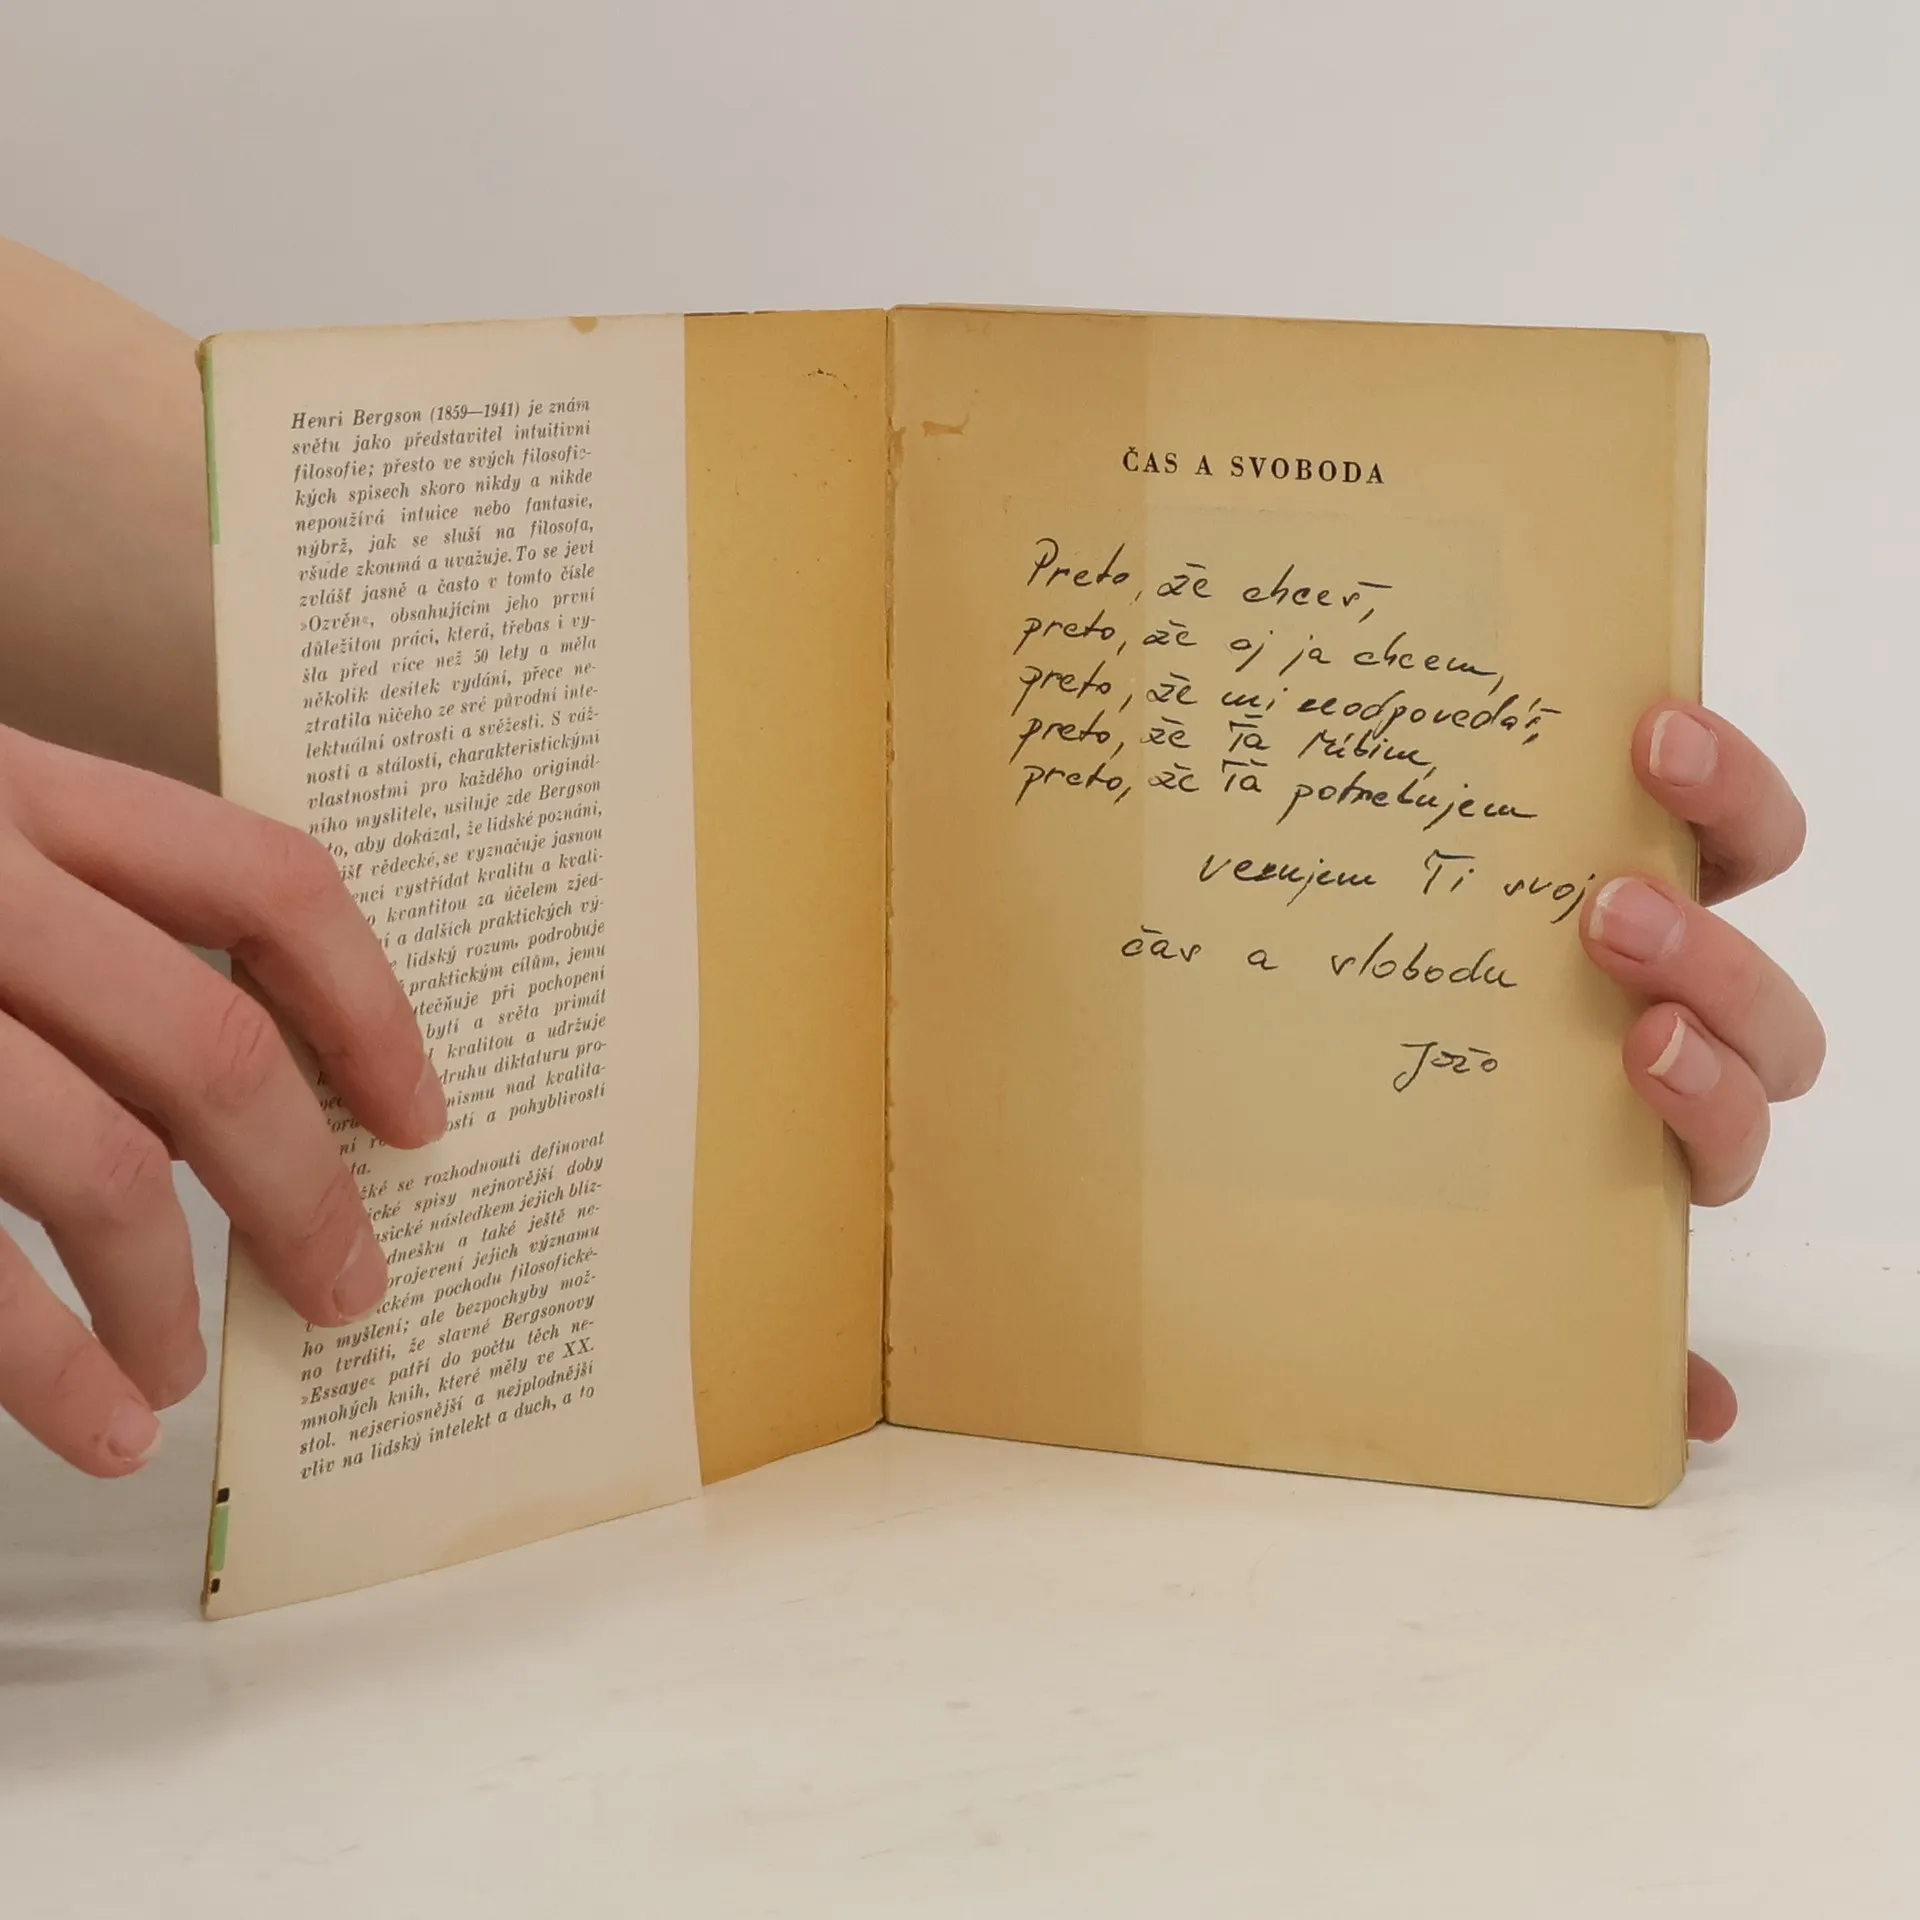 Henri Bergson (1859—1941) je znám
světu jako představitel intuitivní
filosofie; přesto ve svých filosofic-
kých spisech skoro nikdy a nikde
nepoužívá intuice nebo fantasie,
nýbrž, jak se sluší na filosofa,
všude zkoumá a uvažuje. To se jeví
zvlášť jasně a často v tomto čísle
»Ozvěn«, obsahujícím jeho první
důležitou práci, která, třebas i vy-
šla před více než 50 lety a měla
několik desítek vydání, přece ne-
ztratila ničeho ze své původní inte-
lektuální ostrosti a svěžesti. S váž-
ností a stálostí, charakteristickými
vlastnostmi pro každého originál-
ního myslitele, usiluje zde Bergson
to, aby dokázal, že lidské poznání,
vědecké, se vyznačuje jasnou
vystřídat kvalitu a kvali-
kvantitou za účelem zjed-
a dalších praktických vý-
lidský rozum, podrobuje
praktickým cílům, jemu
při pochopení
bytí a světa primát
kvalitou a udržuje
druhu diktaturu pro-
nad kvalita-
a pohyblivostí
se rozhodnouti definovat
spisy nejnovější doby
následkem jejich blíz-
dnešku a také ještě ne-
projevení jejich významu
pochodu filosofické-
ho myšlení; ale bezpochyby mož-
no tvrditi, že slavné Bergsonovy
»Essaye« patří do počtu těch ne-
mnohých knih, které měly ve XX.
stol. nejseriosnější a nejplodnější
vliv na lidský intelekt a duch, a to
ČAS A SVOBODA
Preto, že chceš,
preto, že aj ja chcem,
preto, že mi neodpovedáš,
preto, že Ťa ľúbim,
preto, že Ťa potrebujem
venujem Ti svoj
čas a slobodu
Jožo